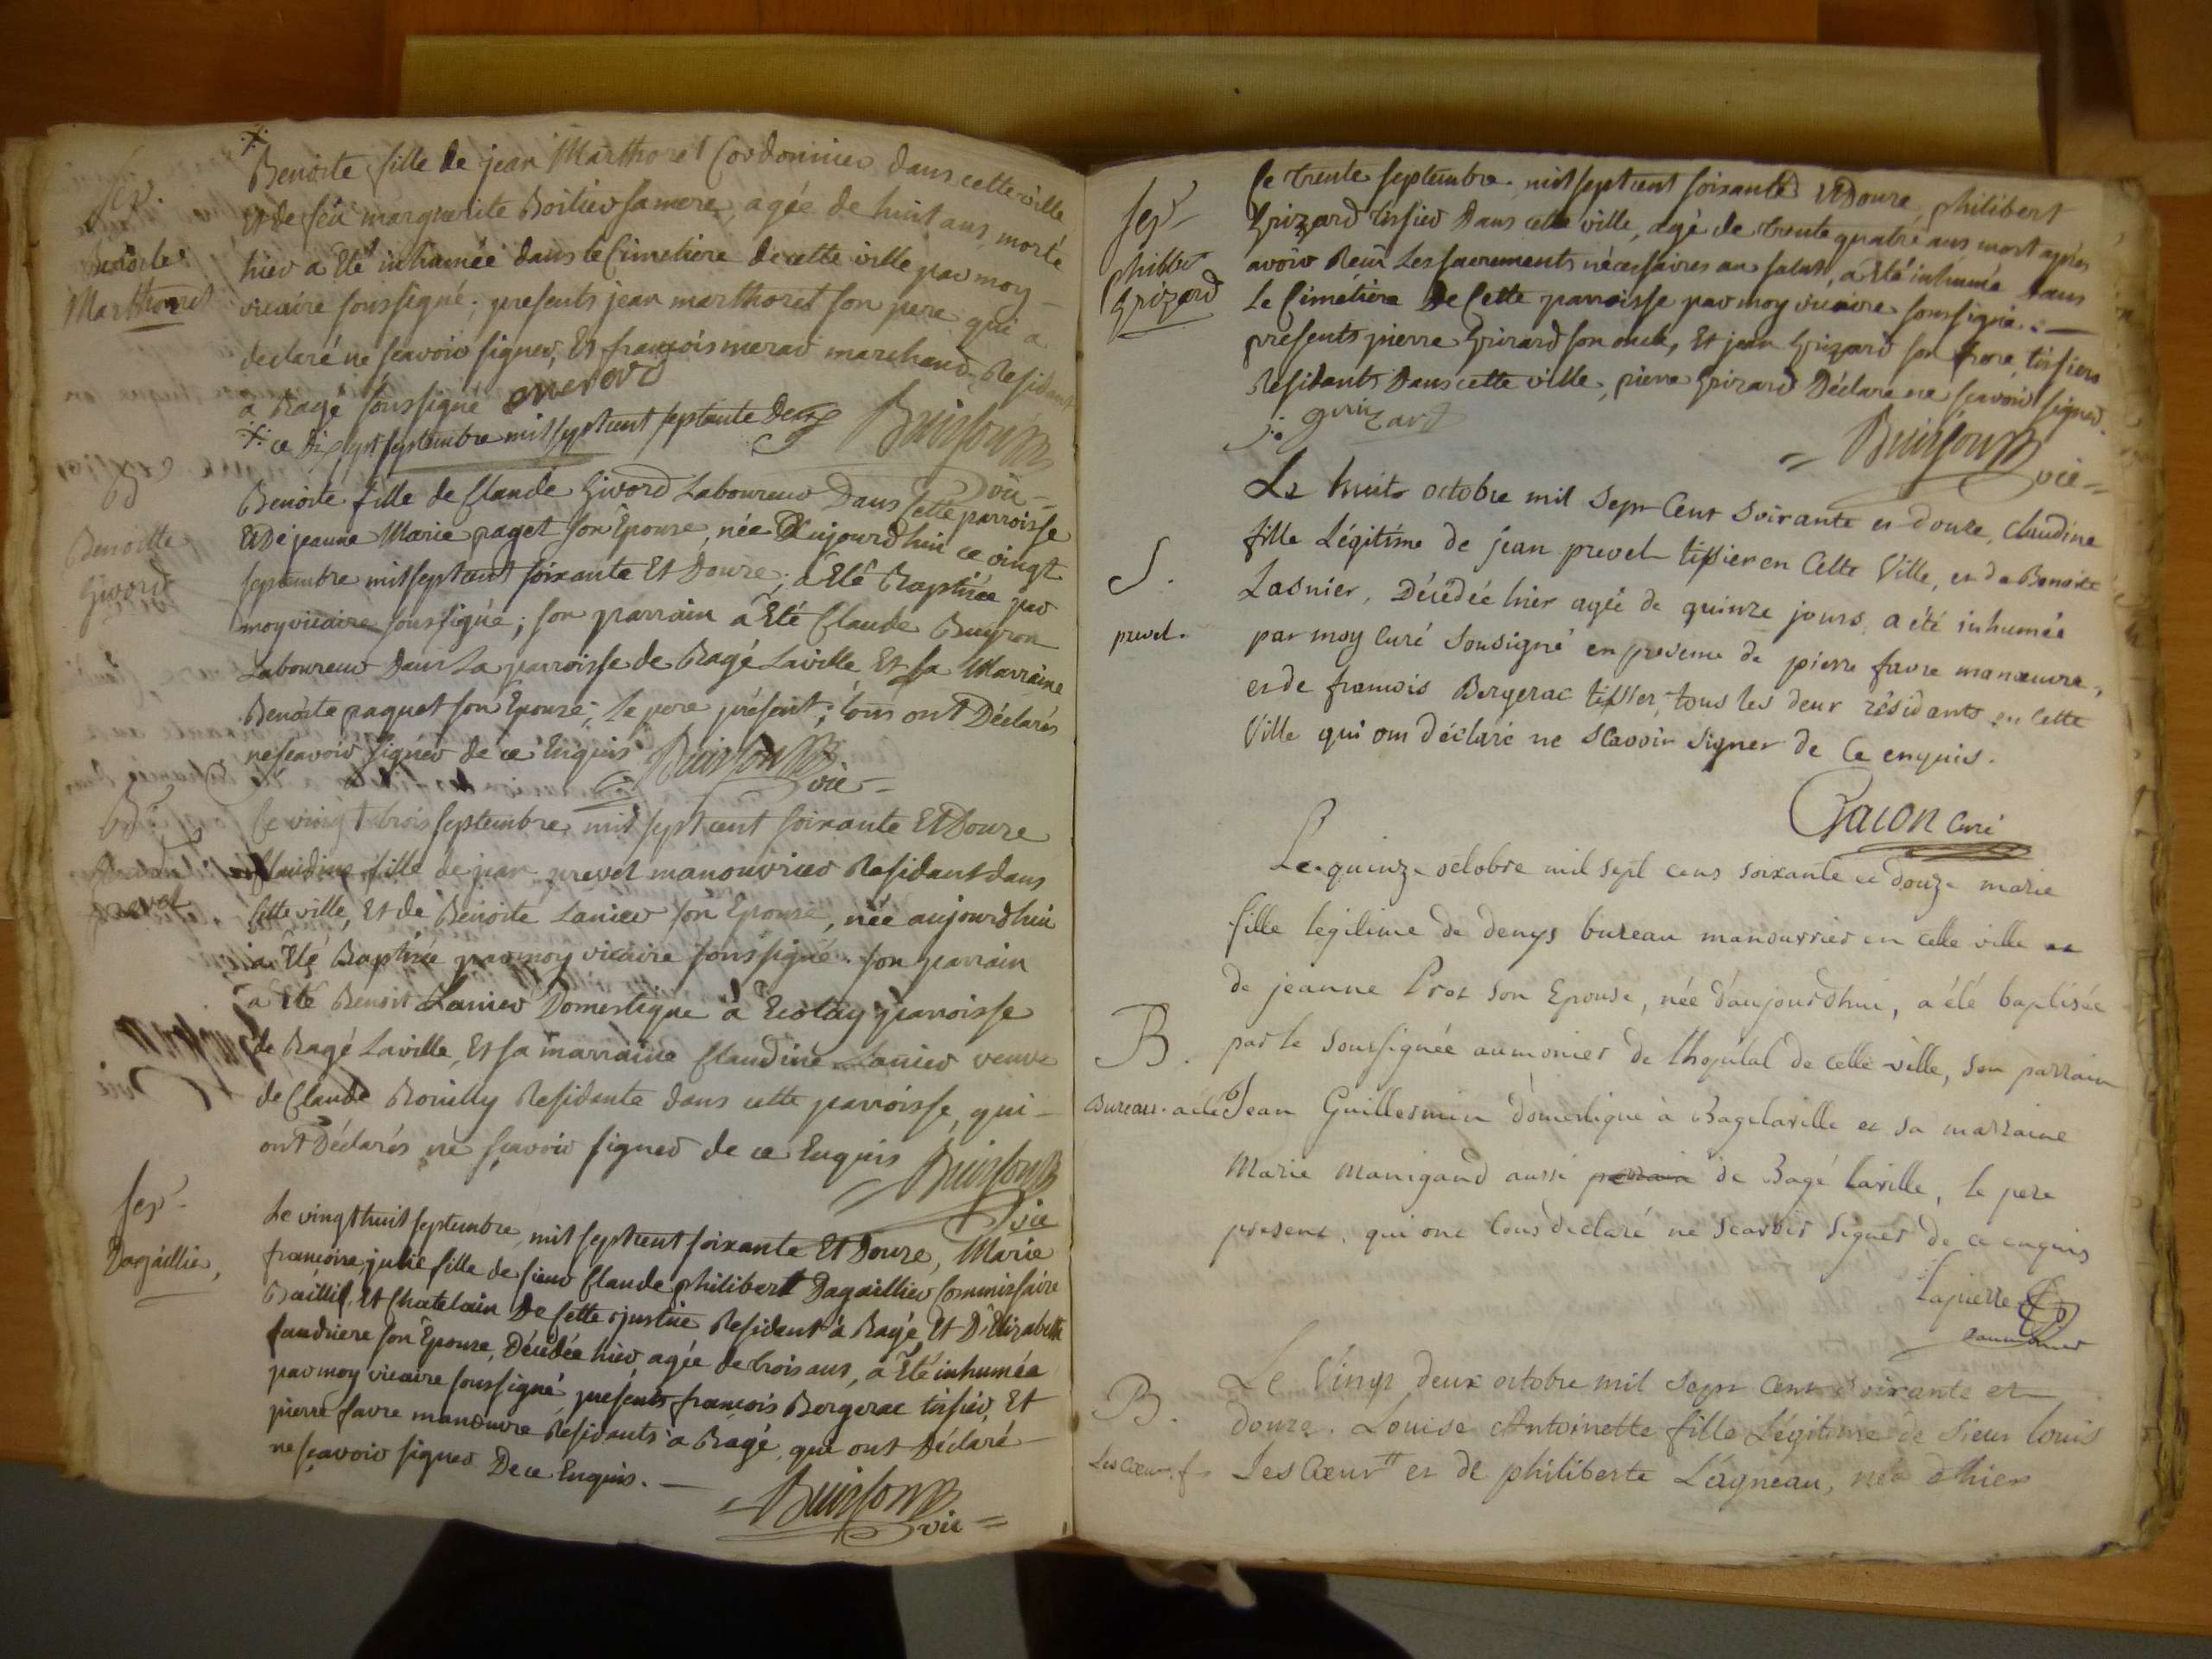 Sep.
Benoite
Marthoret
⁒ Benoite fille de jean Marthoret Cordonnier dans cette ville
et de feu marguerite Boitier sa mere, agée de huit ans, morte
hier a Eté inhumée dans le Cimetiere de cette ville par moy
vicaire soussigné; presents jean marthoret son pere qui a
declaré ne scavoir signer, Et françois merad marchand Residant
à Bagé soussigné merod
⁒ ce septembre mil sept cent septante deux Buisson
vic
B
Benoitte
Givord
Benoite fille de Claude Givord Laboureur Dans Cette parroisse
Et De jeanne Marie paget son Epouse, née Aujourdhui ce vingt
septembre mil sept cent soixante Et Douze; à Eté Baptisée par
moy vicaire soussigné; son parrain a Eté Claude Buyron
Laboureur Dans La parroisse de Bagé Laville, Et sa Marraine
Benoite paquet son Epouse; Le pere présent; tous ont Déclarés
ne scavoir signer de ce Enquis Buisson
vic
B
prevel
Ce vingt trois septembre mil sept cent soixante Et Douze
Claudine fille de jean prevel manouvrier Residant dans
Cette ville, Et de Benoite Lanier son Epouse, née aujourdhui
à Eté Baptisée par moy vicaire soussigné. son parrain
a Eté Benoit Lanier Domestique à Ecolay parroisse
de Bagé Laville, Et sa marraine Claudine Lanier veuve
de Claude Rouilly Residante dans cette parroisse, qui
ont Déclarés ne sçavoir signer de ce Enquis Buisson
vic
Sep.
Dagaillier,
Le vingt huit septembre, mil sept cent soixante Et Douze, Marie
francoise julie fille de sieur Claude philibert Dagaillier Commissaire
Baillif, Et Chatelain De Cette justice Resident à Bagé, Et De Elizabeth
faudriere son Epouse, Décédée hier agée de trois ans, a Eté inhumée
par moy vicaire soussigné, presents françois Bergerac tissier, Et
pierre favre manœuvre Residants à Bagé, qui ont Déclaré
ne sçavoir signer De ce Enquis.
Buisson
vic
Sep.
phibbt
Grizard
Le trente septembre mil sept cent soixante Et Douze, philibert
Grizzard tissier Dans cette ville, agé de trente quatre ans mort après
avoir Reçu Les sacrements nécessaires au salut, a Eté inhumé dans
Le Cimetiere De Cette parroisse par moy vicaire soussigné.
présents pierre Grizard son oncle, Et jean Grizard son frere, tissiers
Residants Dans cette ville, pierre Grizard Déclare ne sçavoir signer
j: grinzard
Buisson
vic
S.
prevel.
Le huit octobre mil sept Cent soixante et douze, Claudine
fille Légitime de jean prevel tissier en Cette Ville, et de Benoite
Lasnier, Décédée hier agée de quinze jours, a été inhumée
par moy Curé Sousigné en presence de pierre favre manœuvre,
et de francois Bergerac tissier, tous les deux résidants en Cette
Ville qui ont déclaré ne Scavoir Signer de Ce enquis.
Gacon Curé
B.
Bureau.
Le quinze octobre mil sept cens soixante et douze marie
fille legitime de denys bureau manouvrier en cette ville et
de jeanne Prot son Epouse, née d'aujourdhui, a été baptisée
par le soussignée aumonier de lhopital de cette ville, son parrain
a été Jean Guillermin domestique à Bagelaville et sa marraine
Marie Manigand aussi de Bagé laville, le pere
present, qui ont tous declaré ne scavoir signer de ce enquis
Lapierre
aumonier
B.
Les Cœur. f
Le Vingt deux octobre mil Sept Cent soixante et
douze. Louise Antoinette fille Légitime de Sieur Louis
Les Cœur et de philiberte Lagneau, née d'hier